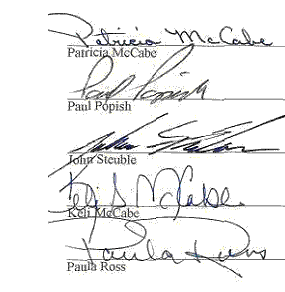 Patricia McCabe
Patricia McCabe
Paul Popish
Paul Popish
John Steuble
John Steuble
Keli S McCabe
Keli McCabe
Paula Ross
Paula Ross